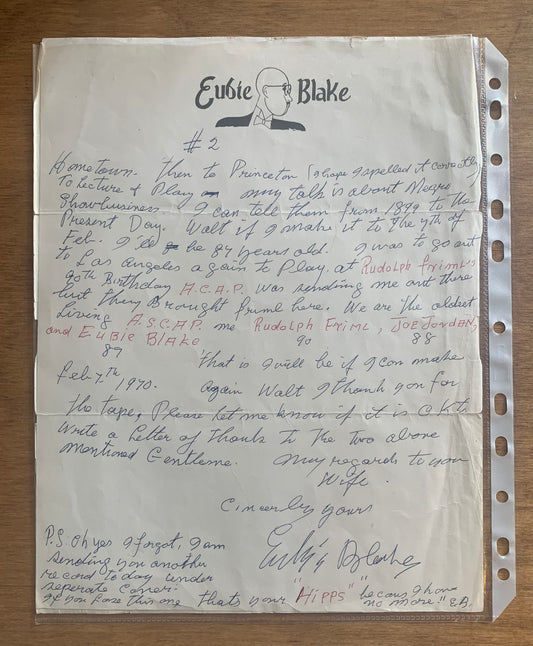 Eubie Blake
#2
Hometown. Then to Princeton (I hope I spelled it correctly)
to Lecture & Play my talk is about Negro
Showbusiness. I can tell them from 1899 to the
Present Day. Walt if I make it to the 7th of
Feb. I'll be 87 years old. I was to go out
to Los Angeles again to Play. at Rudolph Friml's
90th Birthday A.C.A.P. was sending me out there
but they Brought friml here. We are the oldest
Living A.S.C.A.P. me Rudolph Friml, Joe Jordan,
and Eubie Blake 90 88
89
That is I will be if I can make
Feb 7.th 1970. Again Walt I thank you for
the tape, Please let me know if it is O.K. to
write a Letter of Thanks to The two above
mentioned Gentleme. My regards to your
Wife.
Cincerly yours
Eubie Blake
P.S. oh yes I forgot, I am
sending you another
record today under
seperate Cover.
If you Loose this one that's your "Hipps" becaus I have
no more." E.B.